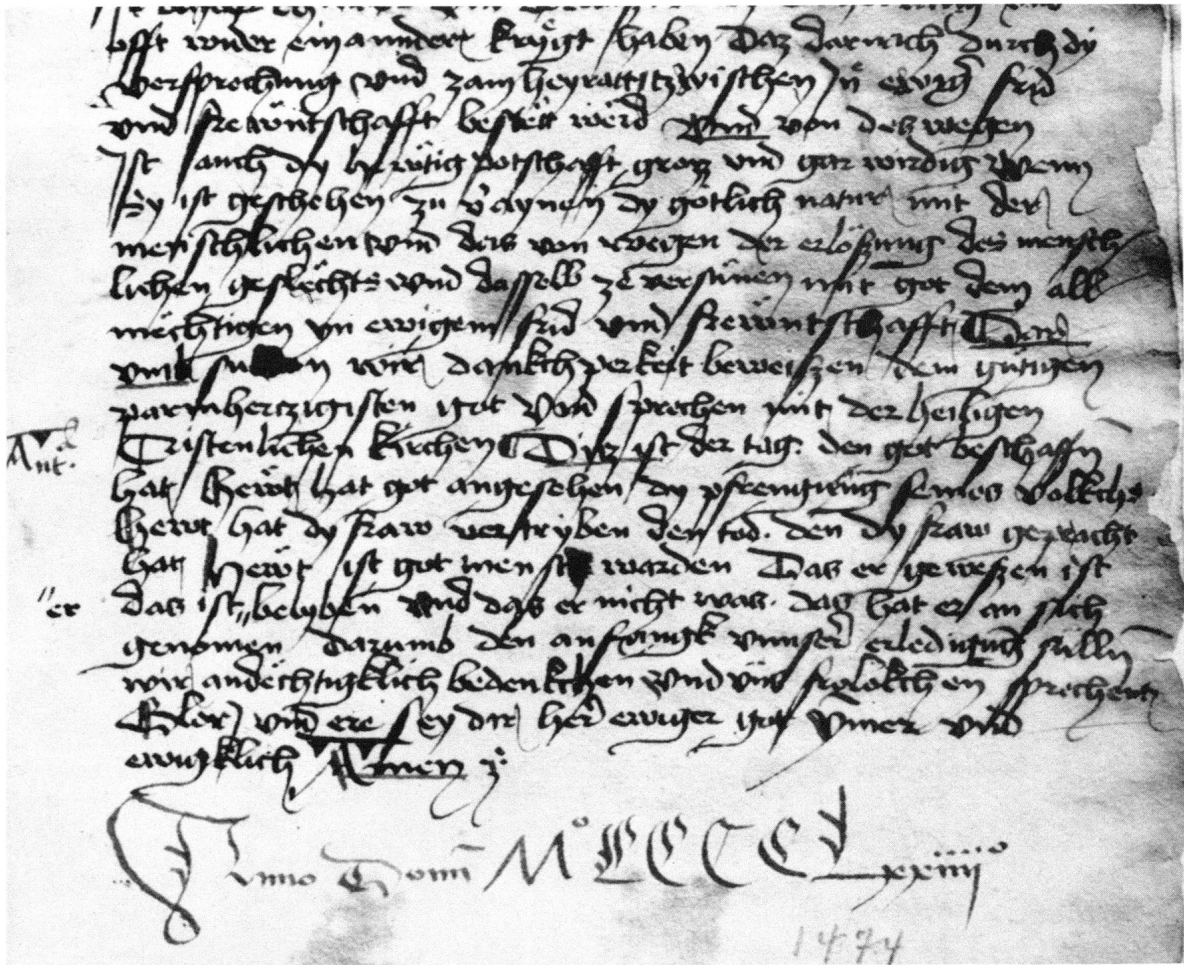 offt wider ein annder kryegt haben Daz darnach durch dy
versprechung vnd zam heyratt tzwischen In ewig frid
vnd frewntschafft bestëtt werd Vnd von des wegen
Ist auch dy hewtig potschafft groz vnd gar wirdig Wenn
Sy ist geschehen zu v̈aynen dy gotlich natur mit der
menschlichen vnd das von wegen der erlösung des mensch
lichen geslëchts vnd dasselb ze versünen mit got dem all
mëchtigen yn ewigem frid vnd frewntschafft Dar
vmb wir dankchperkeit beweiszen dem gütigen
parmhercztigisten got Vnd sprechen mit der heiligen
Cristenlichen kirchen Ditz ist der tag. den got beschaffn
Ant.
hat Hewt hat got angesehen dy pfrengnüng seines volkchs
Hewt hat dy fraw vertryben den tod. den dy fraw gepracht
hat Hewt ist got mensch warden Das er gewesen ist
"er das ist "belyben Vnd das er nicht was. das hat er an sich
genomen Darumb den anfangk vnnser erledigung sülln
wir andëchtigklich bedenkchen vnd vnd frolokchen sprechent
Glor vnd ere sey dir her ewiger got Ymer vnd
ewigklich Amen
Anno Domi Mo CCCC Lxxiiiio
1474